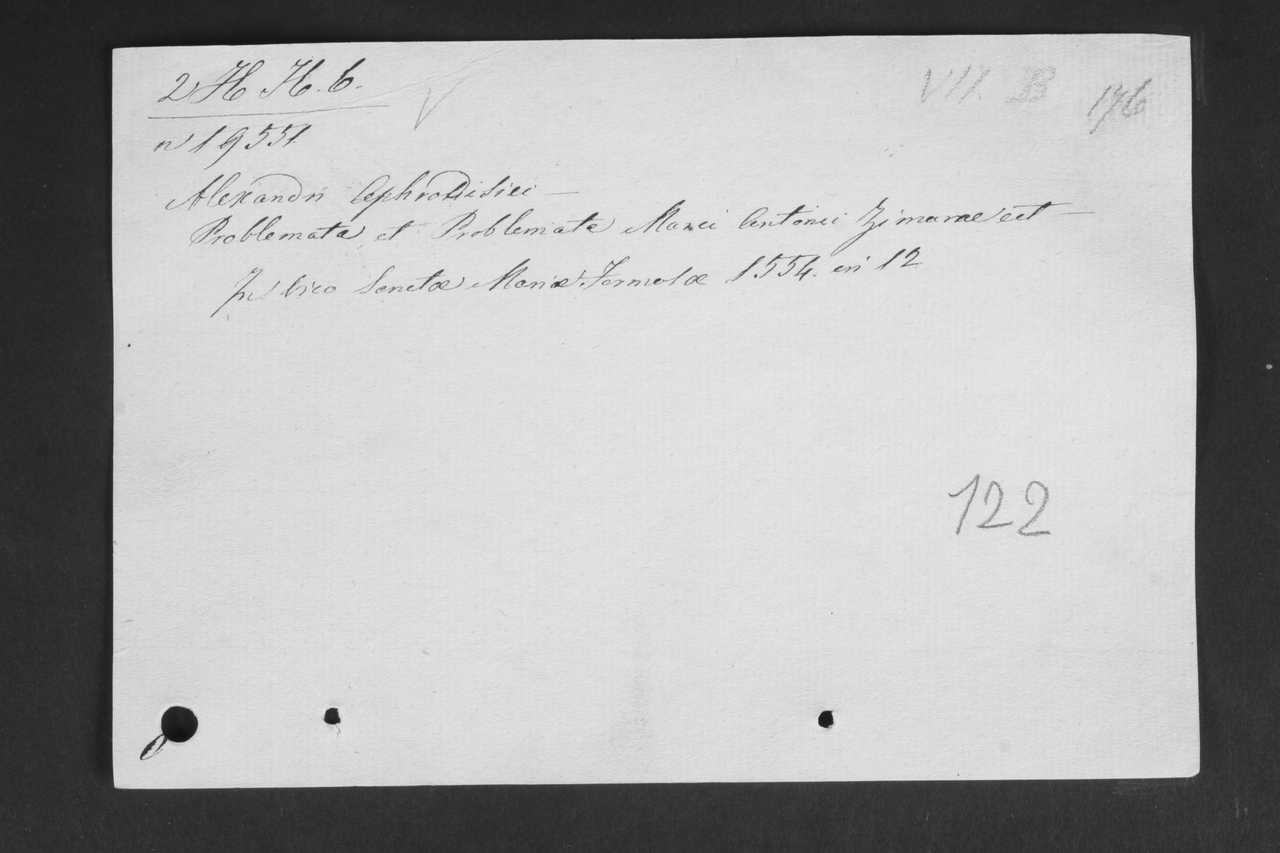 2 H H. 6.
VII. B 176
n 19551
Alexandri Aphrodisiei —
Problemata et Problemata Marci Antonii Zimarae ect —
In Vico Sanctæ Mariæ Formosæ 1554. in 12
122